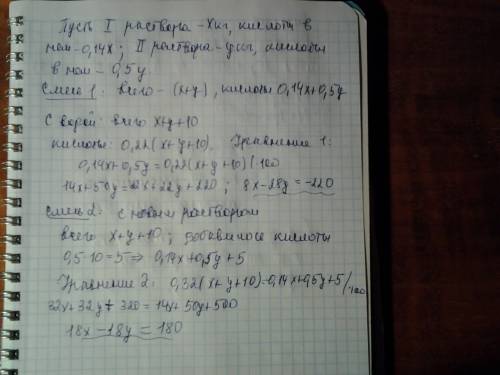 Пусть I раствора - x кг, кислоты в
нём - 0,14x; II раствора - y кг, кислоты
в нём - 0,5y.
Смесь 1: всего - (x+y), кислоты 0,14x+0,5y
С водой: всего x+y+10
кислоты: 0,22(x+y+10). Уравнение 1:
0,14x+0,5y=0,22(x+y+10) | ·100
14x+50y=22x+22y+220; 8x-28y=-220
Смесь 2: с новым раствором
всего x+y+10; добавилось кислоты
0,5·10=5 ⇒ 0,14x+0,5y+5
Уравнение 2: 0,32(x+y+10)=0,14x+0,5y+5 /·100
32x+32y+320=14x+50y+500
18x-18y=180